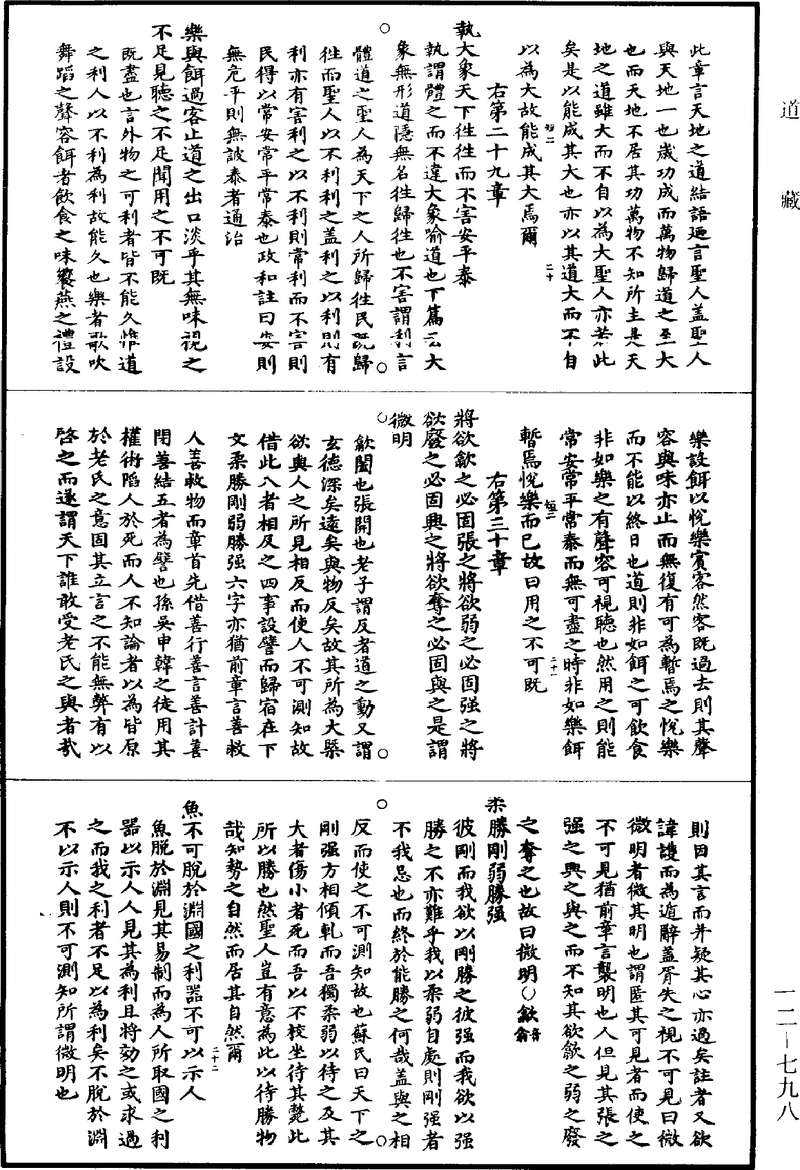 道藏
此章言天地之道結語迺言聖人蓋聖人
與天地一也歲功成而萬物歸道之至大
也而天地不居其功萬物不知所主是天
地之道雖大而不自以為大聖人亦若此
矣是以能成其大也亦以其道大而不自
以為大故能成其大焉爾
右第二十九章
二十
執大象天下往往而不害安平泰
執謂體之而不違大象喻道也下篇云大
象無形道隱無名往歸往也不害謂利言
體道之聖人為天下之人所歸往民既歸
往而聖人以不利利之蓋利之以利則有
利亦有害利之以不利則常利而不害則
民得以常安常平常泰也政和註曰安則
無危平則無詖泰者通治
樂與餌過客止道之出口淡乎其無味視之
不足見聽之不足聞用之不可既
既盡也言外物之可利者皆不能久惟道
之利人以不利為利故能久也樂者歌吹
舞蹈之聲容餌者飲食之味饗燕之禮設
樂設餌以悅樂賓客然客既過去則其聲
容與味亦止而無復有可為暫焉之悅樂
而不能以終日也道則非如餌之可飲食
非如樂之有聲容可視聽也然用之則能
常安常平常泰而無可盡之時非如樂餌
暫焉悅樂而已故曰用之不可既
右第三十章
二十一
將欲歙之必固張之將欲弱之必固强之將
欲廢之必固興之將欲奪之必固與之是謂
微明
歙闔也張開也老子謂反者道之動又謂
玄德深矣遠矣與物反矣故其所為大槩
欲與人之所見相反而使人不可測知故
借此八者相反之四事設譬而歸宿在下
文柔勝剛弱勝强六字亦猶前章言善救
人善救物而章首先借善行善言善計善
閉善結五者為譬也孫吳申韓之徒用其
權術陷人於死而人不知論者以為皆原
於老氏之意固其立言之不能無弊有以
啓之而遂謂天下誰敢受老氏之與者哉
則因其言而并疑其心亦過矣註者又欲
諱護而為遁辭蓋胥失之視不可見曰微
微明者微其明也謂匿其可見者而使之
不可見猶前章言襲明也人但見其張之
强之興之與之而不知其欲歙之弱之廢
之奪之也故曰微明○歙音翕
柔勝剛弱勝强
彼剛而我欲以剛勝之彼强而我欲以强
勝之不亦難乎我以柔弱自處則剛强者
不我忌也而終於能勝之何哉蓋與之相
反而使之不可測知故也蘇氏曰天下之
剛强方相傾軋而吾獨柔弱以待之及其
大者傷小者死而吾以不校坐待其斃此
所以勝也然聖人豈有意為此以待勝物
哉知勢之自然而居其自然爾
二十二
魚不可脫於淵國之利器不可以示人
魚脫於淵見其易制而為人所取國之利
器以示人人見其為利且將効之或求過
之而我之利者不足以為利矣不脫於淵
不以示人則不可測知所謂微明也
一二—七九八